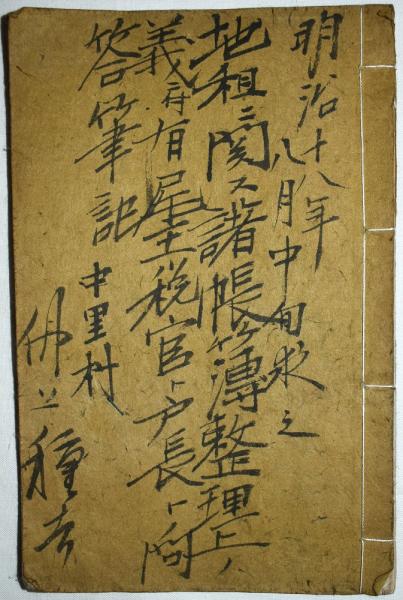 明治十八年
八月中旬求之
地租ニ関スル諸帳簿整理上ノ
義ニ付有尾主税官ト戸長ト問
答筆記
中里村